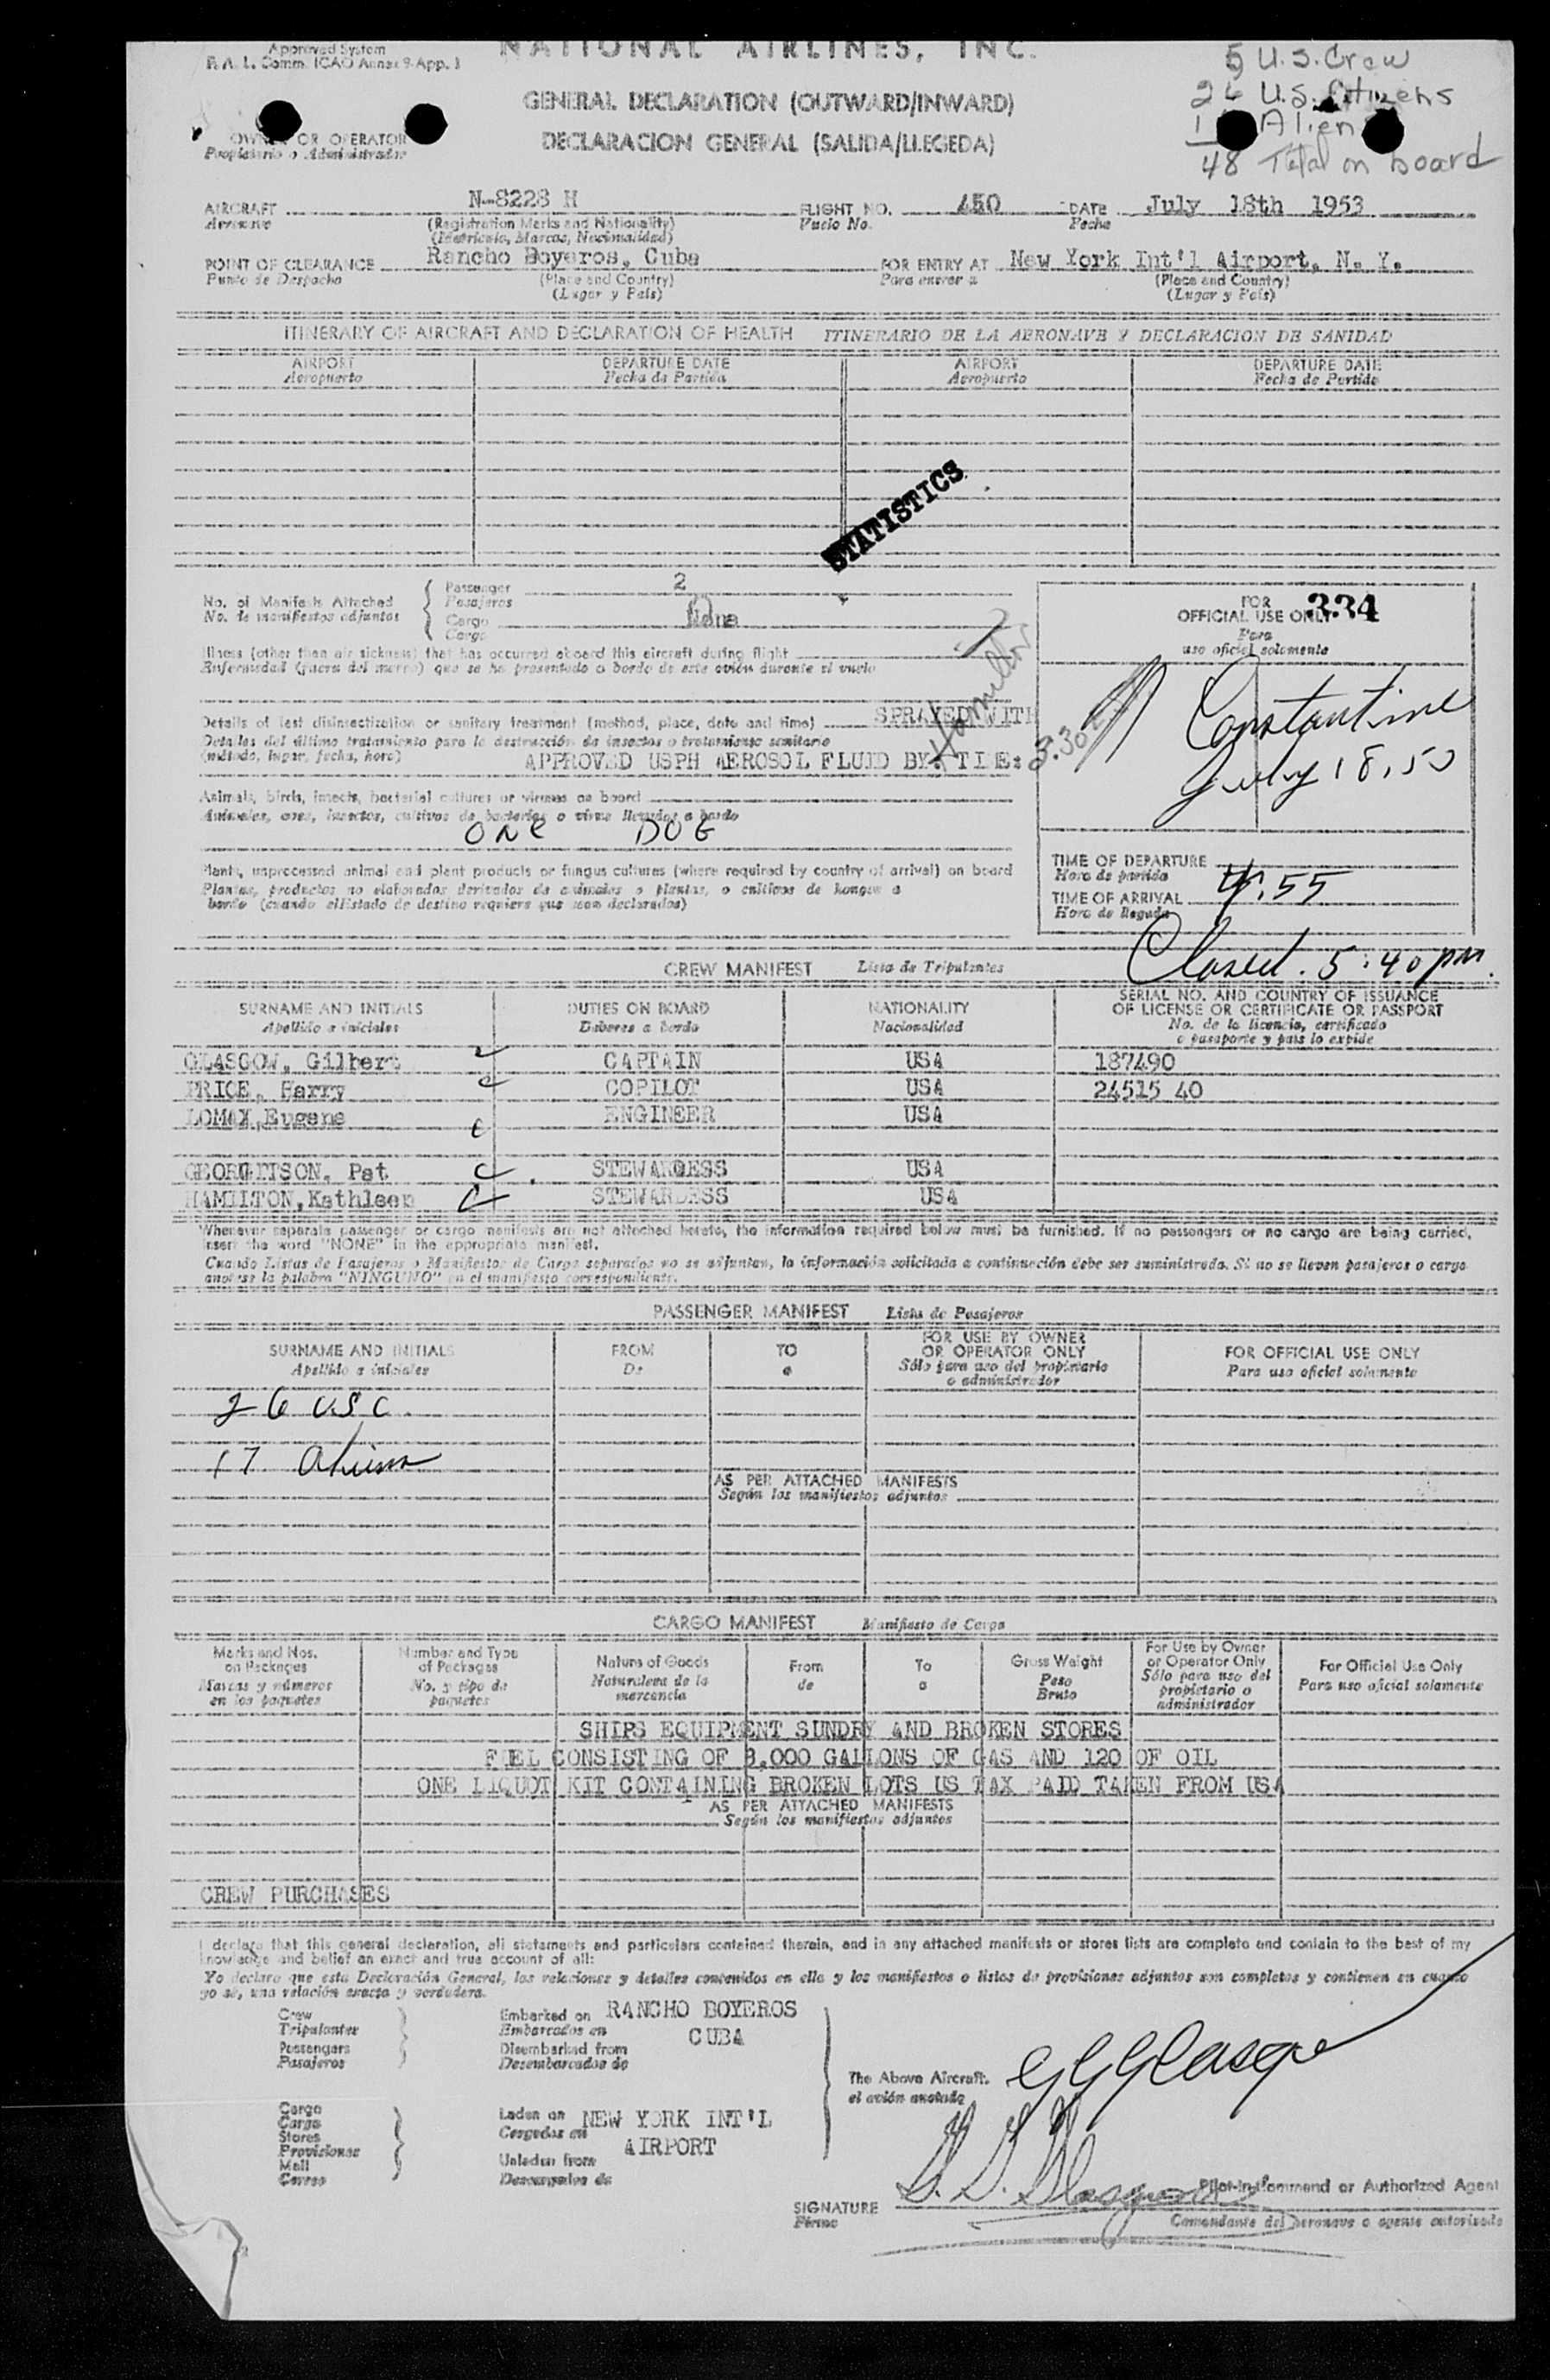 Approved System
F. A. L. Comm. ICAO Annex 9-App. 1
NATIONAL AIRLINES, INC.
5 U.S. Crew
26 U.S. Citizens
1 Alien
48 Total on board
GENERAL DECLARATION (OUTWARD/INWARD)
DECLARACION GENERAL (SALIDA/LLEGEDA)
OWNER OR OPERATOR
Propietario o Administrador
AIRCRAFT N-8228 H FLIGHT NO. 450 DATE July 18th 1953
Aeronave (Registration Marks and Nationality) Vuelo No. Fecha
(Matricula, Marcas, Nacionalidad)
POINT OF CLEARANCE Rancho Boyeros, Cuba FOR ENTRY AT New York Int'l Airport, N. Y.
Punto de Despacho (Place and Country) Para entrar a (Place and Country)
(Lugar y Pais) (Lugar y Pais)
ITINERARY OF AIRCRAFT AND DECLARATION OF HEALTH ITINERARIO DE LA AERONAVE Y DECLARACION DE SANIDAD
AIRPORT DEPARTURE DATE AIRPORT DEPARTURE DATE
Aeropuerto Fecha de Partida Aeropuerto Fecha de Partida
STATISTICS
No. of Manifests Attached Passenger 2
No. de manifiestos adjuntos Pasajeros
Cargo None
Carga
FOR 334
OFFICIAL USE ONLY
Para
uso oficial solamente
Illness (other than air sickness) that has occurred aboard this aircraft during flight
Enfermedad (fuera del mareo) que se ha presentado a bordo de este avión durante el vuelo
Details of last disinsectization or sanitary treatment (method, place, date and time) SPRAYED WITH
Detalles del último tratamiento para la destrucción de insectos o tratamiento sanitario
(método, lugar, fecha, hora) APPROVED USPH AEROSOL FLUID BY: Hamilton TIME: 3:30
Constantine
July 18, 53
Animals, birds, insects, bacterial cultures or viruses on board
Animales, aves, insectos, cultivos de bacterias o virus llevados a bordo
ONE DOG
Plants, unprocessed animal and plant products or fungus cultures (where required by country of arrival) on board
Plantas, productos no elaborados derivados de animales o plantas, o cultivos de hongos a
bordo (cuando el Estado de destino requiere que sean declarados)
TIME OF DEPARTURE
Hora de partida
TIME OF ARRIVAL 4:55
Hora de llegada
Closed. 5:40 pm.
CREW MANIFEST Lista de Tripulantes
SURNAME AND INITIALS DUTIES ON BOARD NATIONALITY SERIAL NO. AND COUNTRY OF ISSUANCE
OF LICENSE OR CERTIFICATE OR PASSPORT
Apellido e iniciales Deberes a bordo Nacionalidad No. de la licencia, certificado
o pasaporte y pais lo expide
GLASGOW, Gilbert CAPTAIN USA 187490
PRICE, Harry COPILOT USA 24515 40
LOMAX, Eugene ENGINEER USA
GEORGITSON, Pat STEWARDESS USA
HAMILTON, Kathleen STEWARDESS USA
Whenever separate passenger or cargo manifests are not attached hereto, the information required below must be furnished. If no passengers or no cargo are being carried,
insert the word "NONE" in the appropriate manifest.
Cuando Listas de Pasajeros o Manifiestos de Carga separados no se adjuntan, la información solicitada a continuación debe ser suministrada. Si no se lleven pasajeros o carga
anotese la palabra "NINGUNO" en el manifiesto correspondiente.
PASSENGER MANIFEST Lista de Pasajeros
SURNAME AND INITIALS FROM TO FOR USE BY OWNER
OR OPERATOR ONLY FOR OFFICIAL USE ONLY
Apellido e iniciales De a Sólo para uso del propietario
o administrador Para uso oficial solamente
26 USC.
17 Aliens
AS PER ATTACHED MANIFESTS
Según los manifiestos adjuntos
CARGO MANIFEST Manifiesto de Carga
Marks and Nos.
on Packages
Marcas y números
en los paquetes
Number and Type
of Packages
No. y tipo de
paquetes
Nature of Goods
Naturaleza de la
mercancia
From
de
To
a
Gross Weight
Peso
Bruto
For Use by Owner
or Operator Only
Sólo para uso del
propietario o
administrador
For Official Use Only
Para uso oficial solamente
SHIPS EQUIPMENT SUNDRY AND BROKEN STORES
FUEL CONSISTING OF 3,000 GALLONS OF GAS AND 120 OF OIL
ONE LIQUOT KIT CONTAINING BROKEN LOTS US TAX PAID TAKEN FROM USA
AS PER ATTACHED MANIFESTS
Según los manifiestos adjuntos
CREW PURCHASES
I declare that this general declaration, all statements and particulars contained therein, and in any attached manifests or stores lists are complete and contain to the best of my
knowledge and belief an exact and true account of all:
Yo declaro que esta Declaración General, las relaciones y detalles contenidos en ella y los manifiestos o listas de provisiones adjuntos son completos y contienen en cuanto
yo sé, una relación exacta y verdadera.
Crew Embarked on RANCHO BOYEROS
Tripulantes Embarcados en CUBA
Passengers Disembarked from
Pasajeros Desembarcados de
The Above Aircraft. GGGlasgow
el avión anotado
Cargo Laden on NEW YORK INT'L
Carga Cargados en AIRPORT
Stores
Provisiones
Mail Unladen from
Correo Descargados de
SIGNATURE G. G. Glasgow Pilot-in-Command or Authorized Agent
Firma Comandante del aeronave o agente autorizado